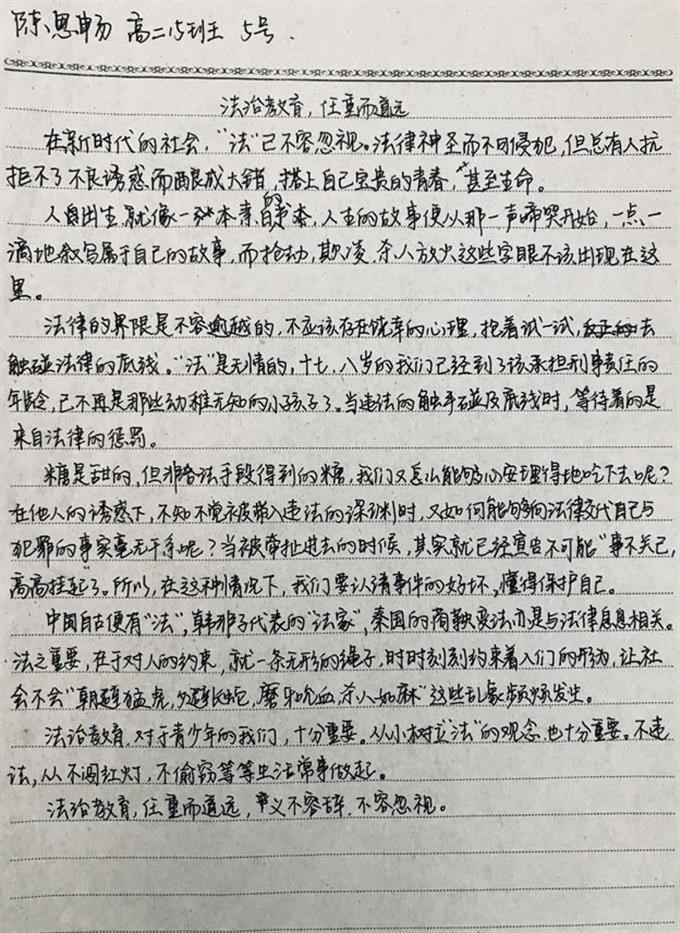 陈思畅 高二15班 5号.
法治教育，任重而道远
在新时代的社会，“法”已不容忽视。法律神圣而不可侵犯，但总有人抗
拒不了不良诱惑而酿成大错，搭上自己宝贵的青春，甚至生命。
人自出生，就像一本素白的书本，人生的故事便从那一声啼哭开始，一点一
滴地叙写属于自己的故事，而抢劫，欺凌，杀人放火这些字眼不该出现在这
里。
法律的界限是不容逾越的，不应该存在侥幸的心理，抱着试一试，去
触碰法律的底线。“法”是无情的，十七、八岁的我们已经到了该承担刑事责任的
年龄，已不再是那些幼稚无知的小孩子了。当违法的触手碰及底线时，等待着的是
来自法律的惩罚。
糖是甜的，但非合法手段得到的糖，我们又怎么能够心安理得地吃下去呢？
在他人的诱惑下，不知不觉被带入违法的误判时，又如何能够向法律交代自己与
犯罪的事实毫无干系呢？当被牵扯进去的时候，其实就已经宣告不可能“事不关己，
高高挂起”了。所以，在这种情况下，我们要认清事件的好坏，懂得保护自己。
中国自古便有“法”，韩非子代表的“法家”，秦国的商鞅变法亦是与法律息息相关。
法之重要，在于对人的约束，就一条无形的绳子，时时刻刻约束着人们的行动，让社
会不会“朝避猛虎，夕避长蛇，磨牙吮血，杀人如麻”这些乱象频频发生。
法治教育，对于青少年的我们，十分重要。从小树立“法”的观念，也十分重要。不违
法，从不闯红灯，不偷窃等等生活常事做起。
法治教育，任重而道远，义不容辞，不容忽视。